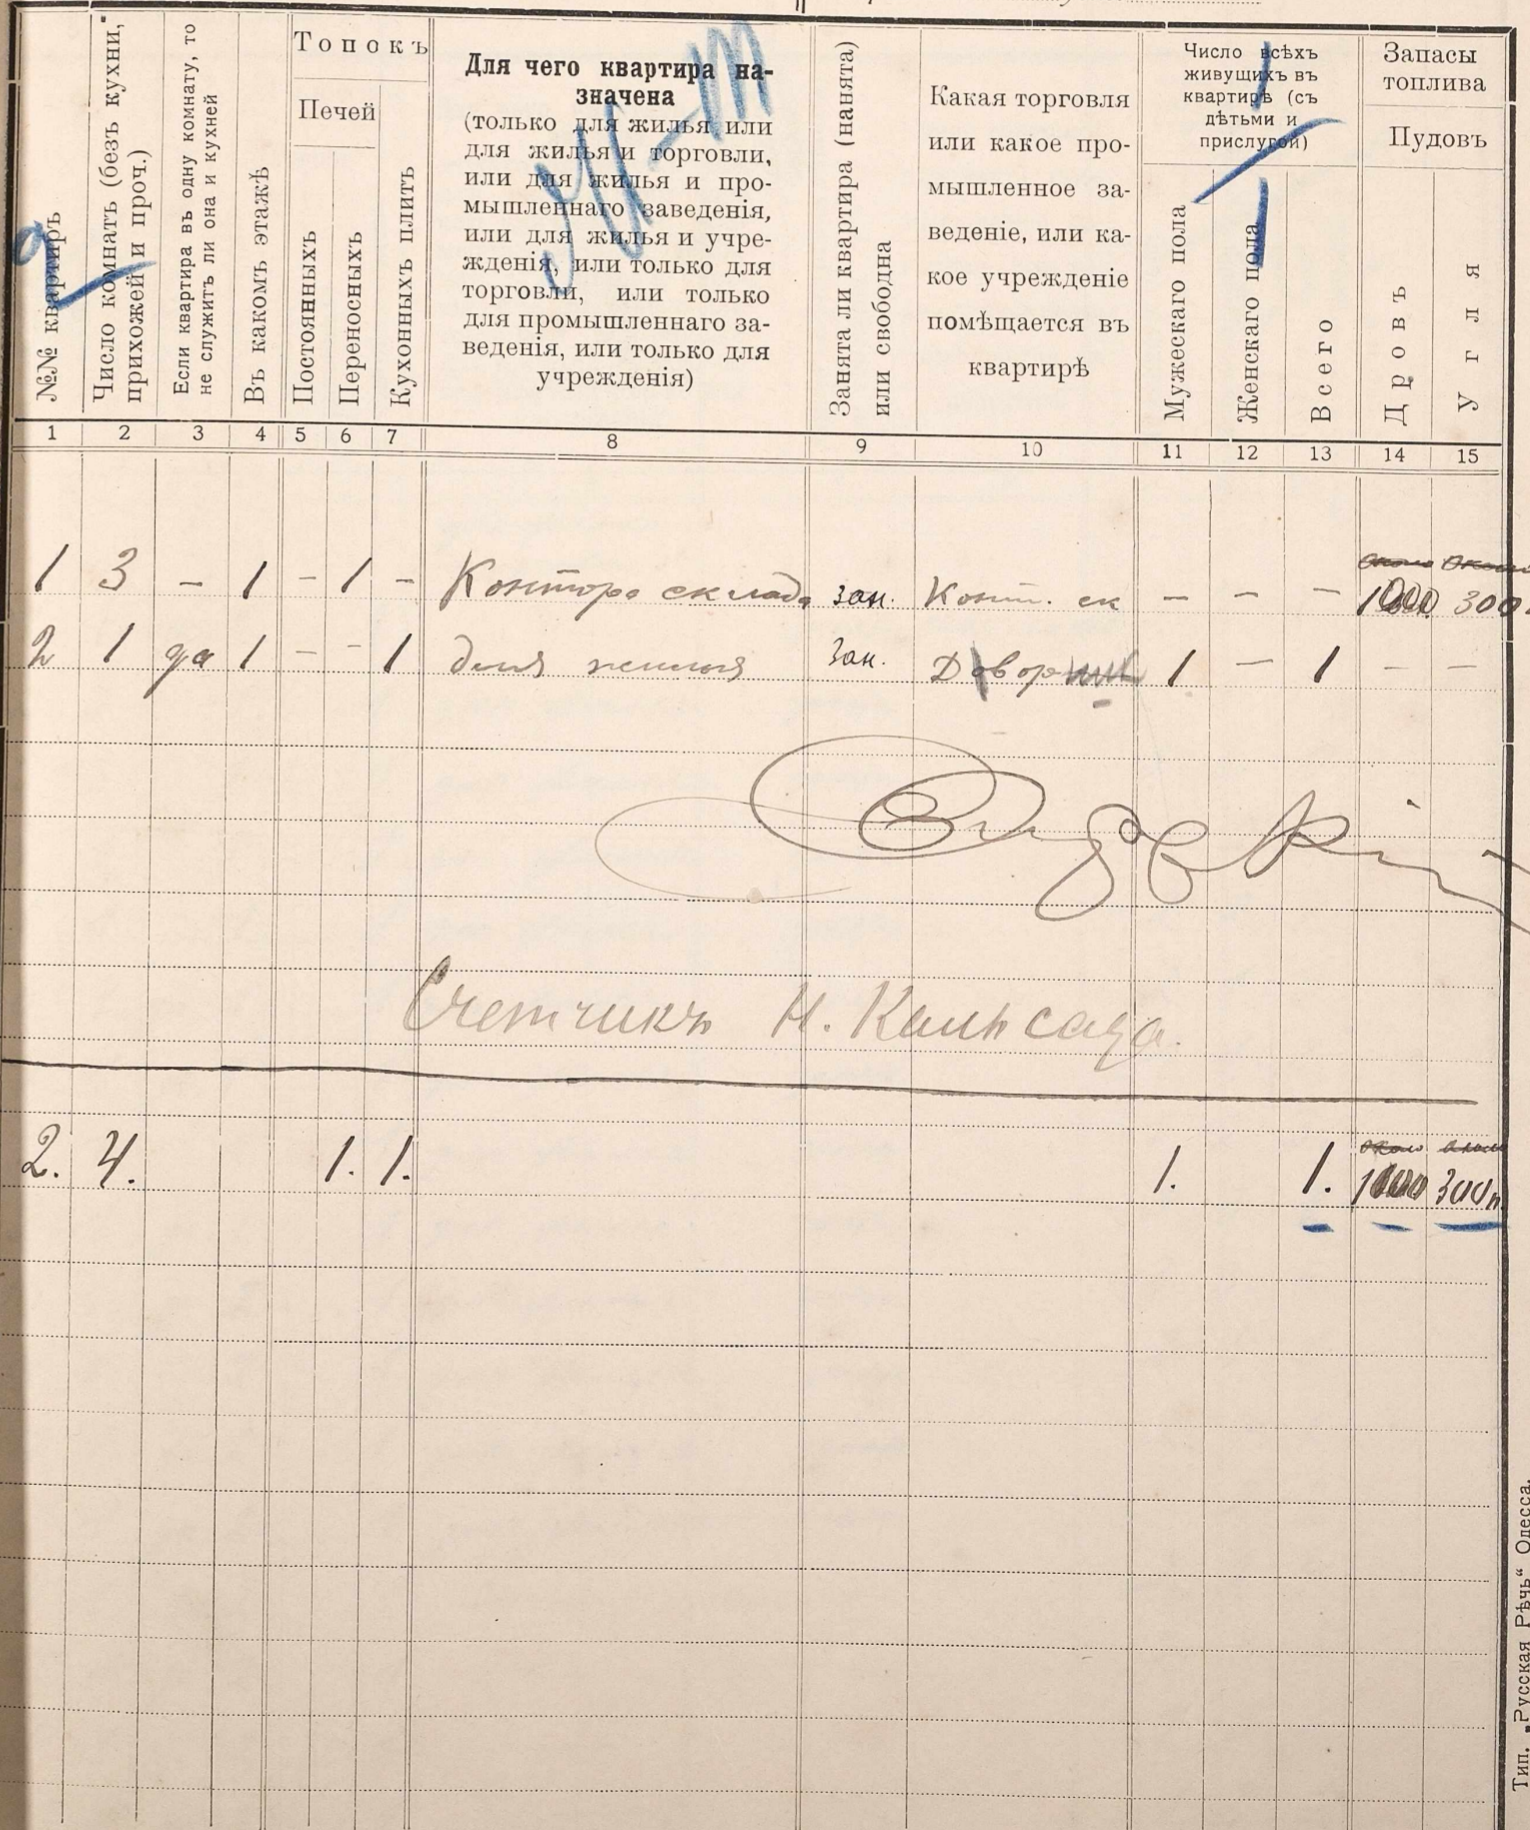 №№ квартиръ
Число комнатъ (безъ кухни,
прихожей и проч.)
Если квартира въ одну комнату, то
не служитъ ли она и кухней
Въ какомъ этажѣ
Топокъ
Печей
Постоянныхъ
Переносныхъ
Кухонныхъ плитъ
Для чего квартира на-
значена
(только для жилья или
для жилья и торговли,
или для жилья и про-
мышленнаго заведенія,
или для жилья и учре-
жденія, или только для
торговли, или только
для промышленнаго за-
веденія, или только для
учрежденія)
Занята ли квартира (нанята)
или свободна
Какая торговля
или какое про-
мышленное за-
веденіе, или ка-
кое учрежденіе
помѣщается въ
квартирѣ
Число всѣхъ
живущихъ въ
квартирѣ (съ
дѣтьми и
прислугой)
Мужескаго пола
Женскаго пола
Всего
Запасы
топлива
Пудовъ
Дровъ
Угля
1 2 3 4 5 6 7 8 9 10 11 12 13 14 15
около около
1 3 – 1 – 1 – Контора склада зан. Конт. ск – – – 1000 300
2 1 да 1 – – 1 для жилья зан. Дворник 1 – 1 – –
Счетчикъ Н.
около около
2. 4. 1. 1. 1. 1. 1000 300п.
Тип. „Русская Рѣчь“ Одесса.